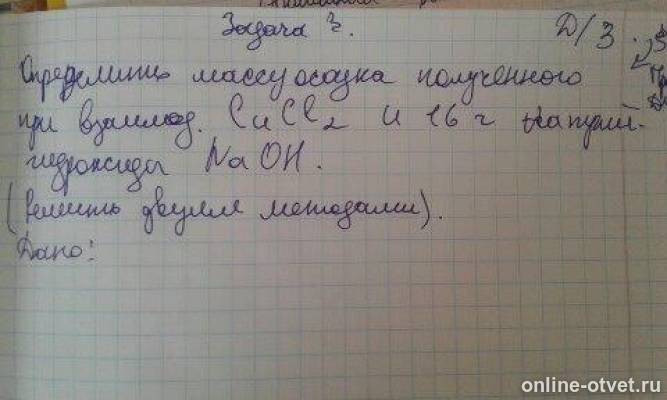 Задача 3.
Д/З.
Определить массу осадка полученного
при взаимод. CuCl2 и 16 г натрий
гидроксида NaOH.
(Решить двумя методами).
Дано:
online-otvet.ru